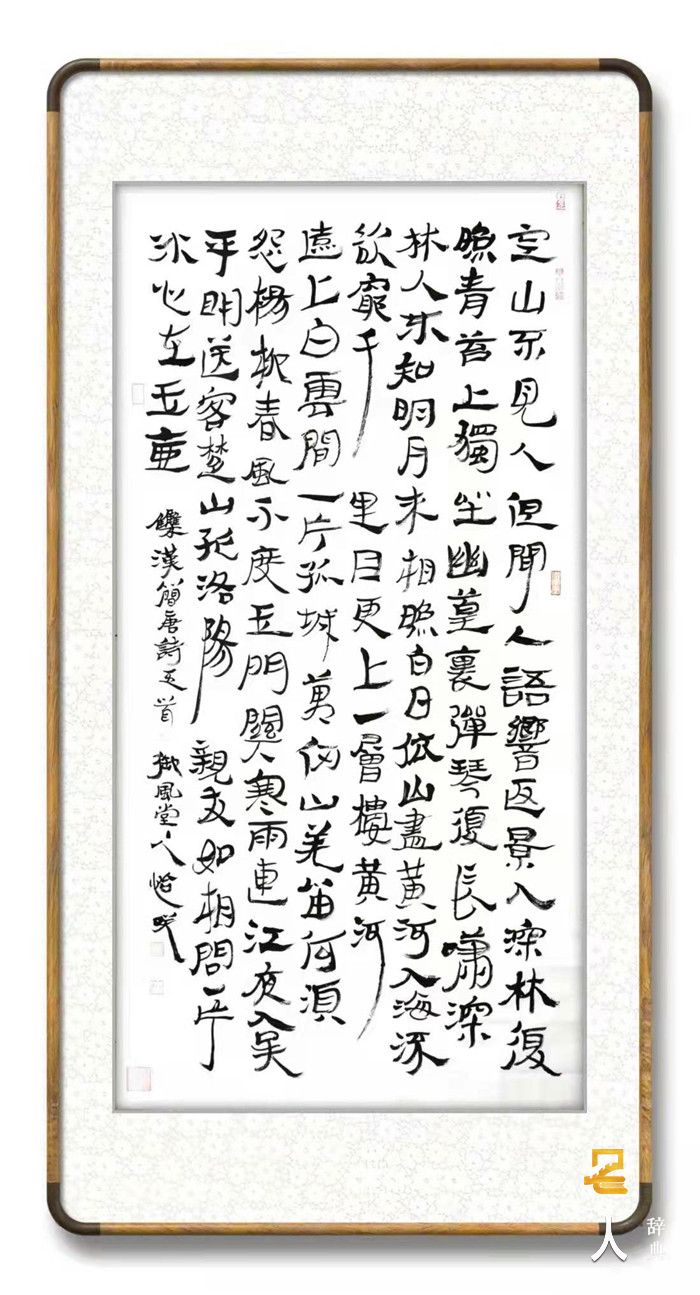 空山不見人但聞人語響返景入深林復
照青苔上獨坐幽篁裏彈琴復長嘯深
林人不知明月来相照白日依山盡黃河入海流
欲窮千里目更上一層樓黃河
遠上白雲間一片孤城萬仞山羌笛何須
怨楊柳春風不度玉門關寒雨連江夜入吴
平明送客楚山孤洛陽親友如相問一片
冰心在玉壺
漢簡唐詩五首 御風堂人
名人
辞典